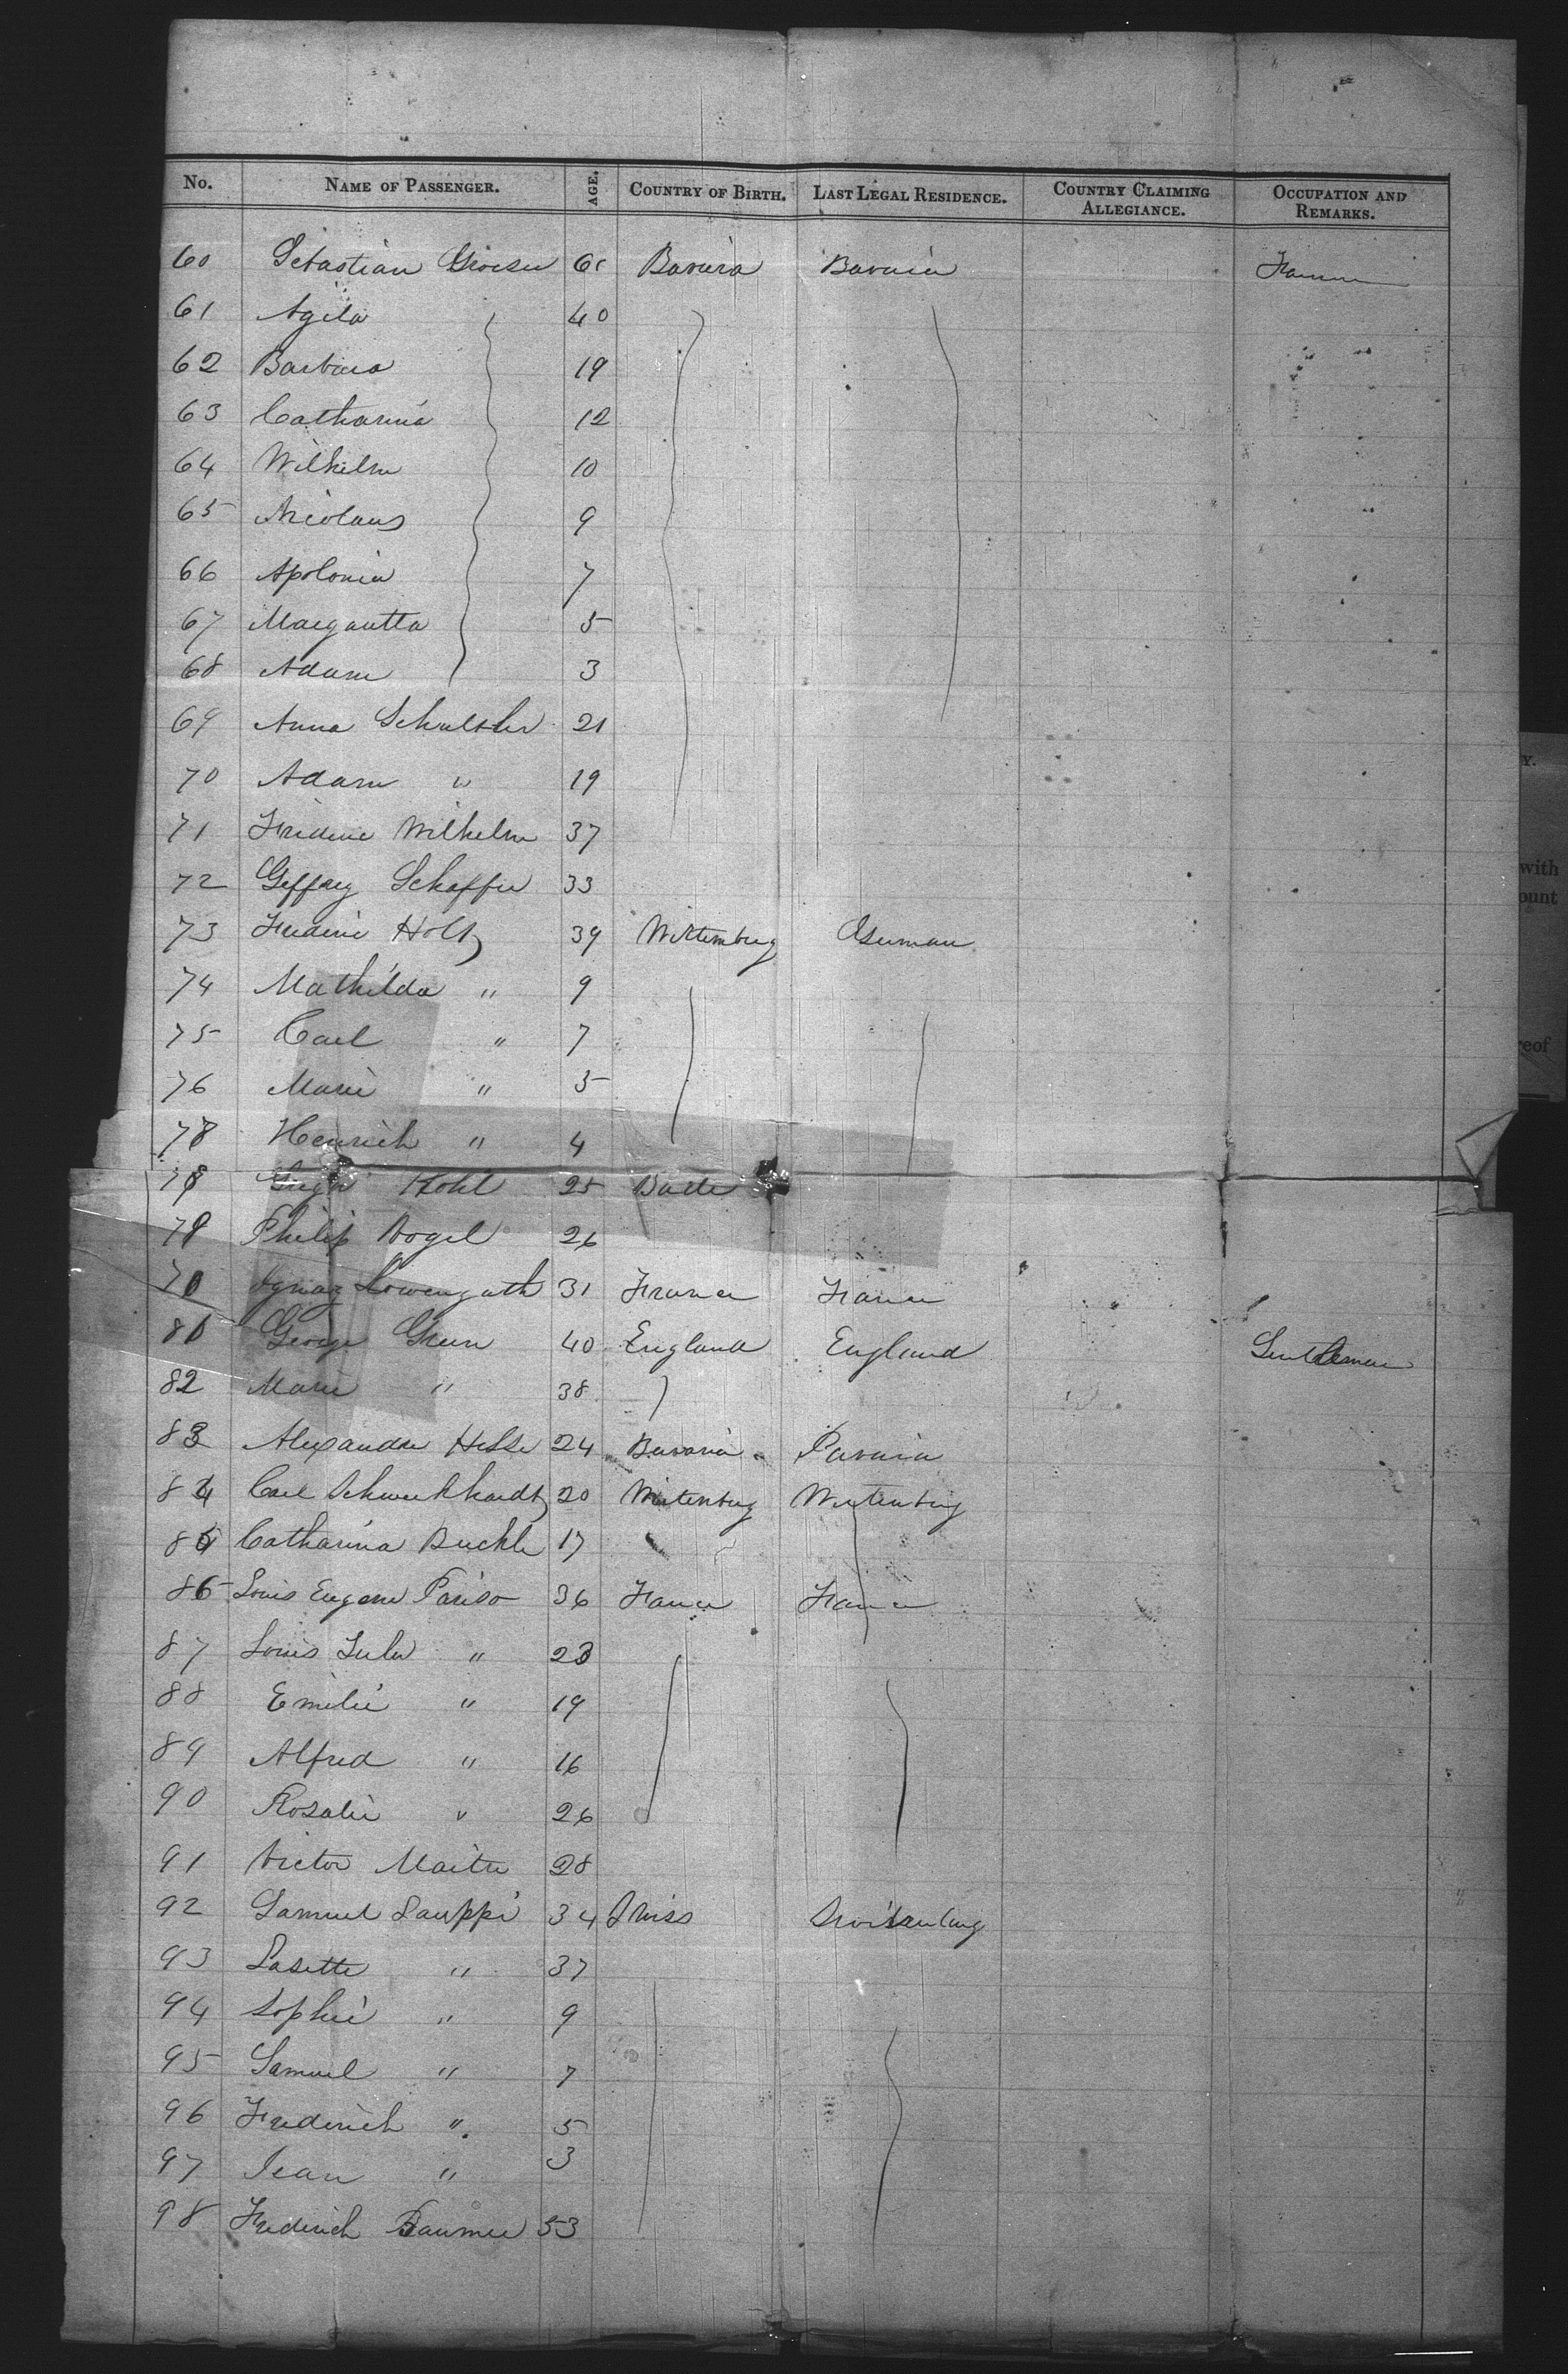 No. NAME OF PASSENGER. AGE. COUNTRY OF BIRTH. LAST LEGAL RESIDENCE. COUNTRY CLAIMING ALLEGIANCE. OCCUPATION AND REMARKS.
60 Sebastian 61 Bavaria Bavaria
61 Agila 40
62 Barbara 19
63 Catharina 12
64 Wilhelm 10
65 Nicolaus 9
66 Apolonia 7
67 Margaretta 5
68 Adam 3
69 Anna 21
70 Adam " 19
71 Wilhelm 37
72 Schaffer 33
73 Holtz 39 German
74 Mathilda " 9
75 Carl " 7
76 Marie " 5
78 Heinrich " 4
Kohl 25 Bade
79 Philip Vogel 26
Ignaz 31 France France
81 George Green 40 England England Gentleman
82 Marie " 38
83 Alexandre Hesse 24 Bavaria Bavaria
84 Carl 20 Wirtenberg Wirtenberg
85 Catharina Buckle 17
86 Louis Eugene Pariso 36 France France
87 Louis " 23
88 Emilie " 19
89 Alfred " 16
90 Rosalie " 26
91 Victor Maitre 28
92 Samuel Lauppi 34 Swiss
93 Lasette " 37
94 Sophie " 9
95 Samuel " 7
96 Frederich " 5
97 Jean " 3
98 Frederich 53